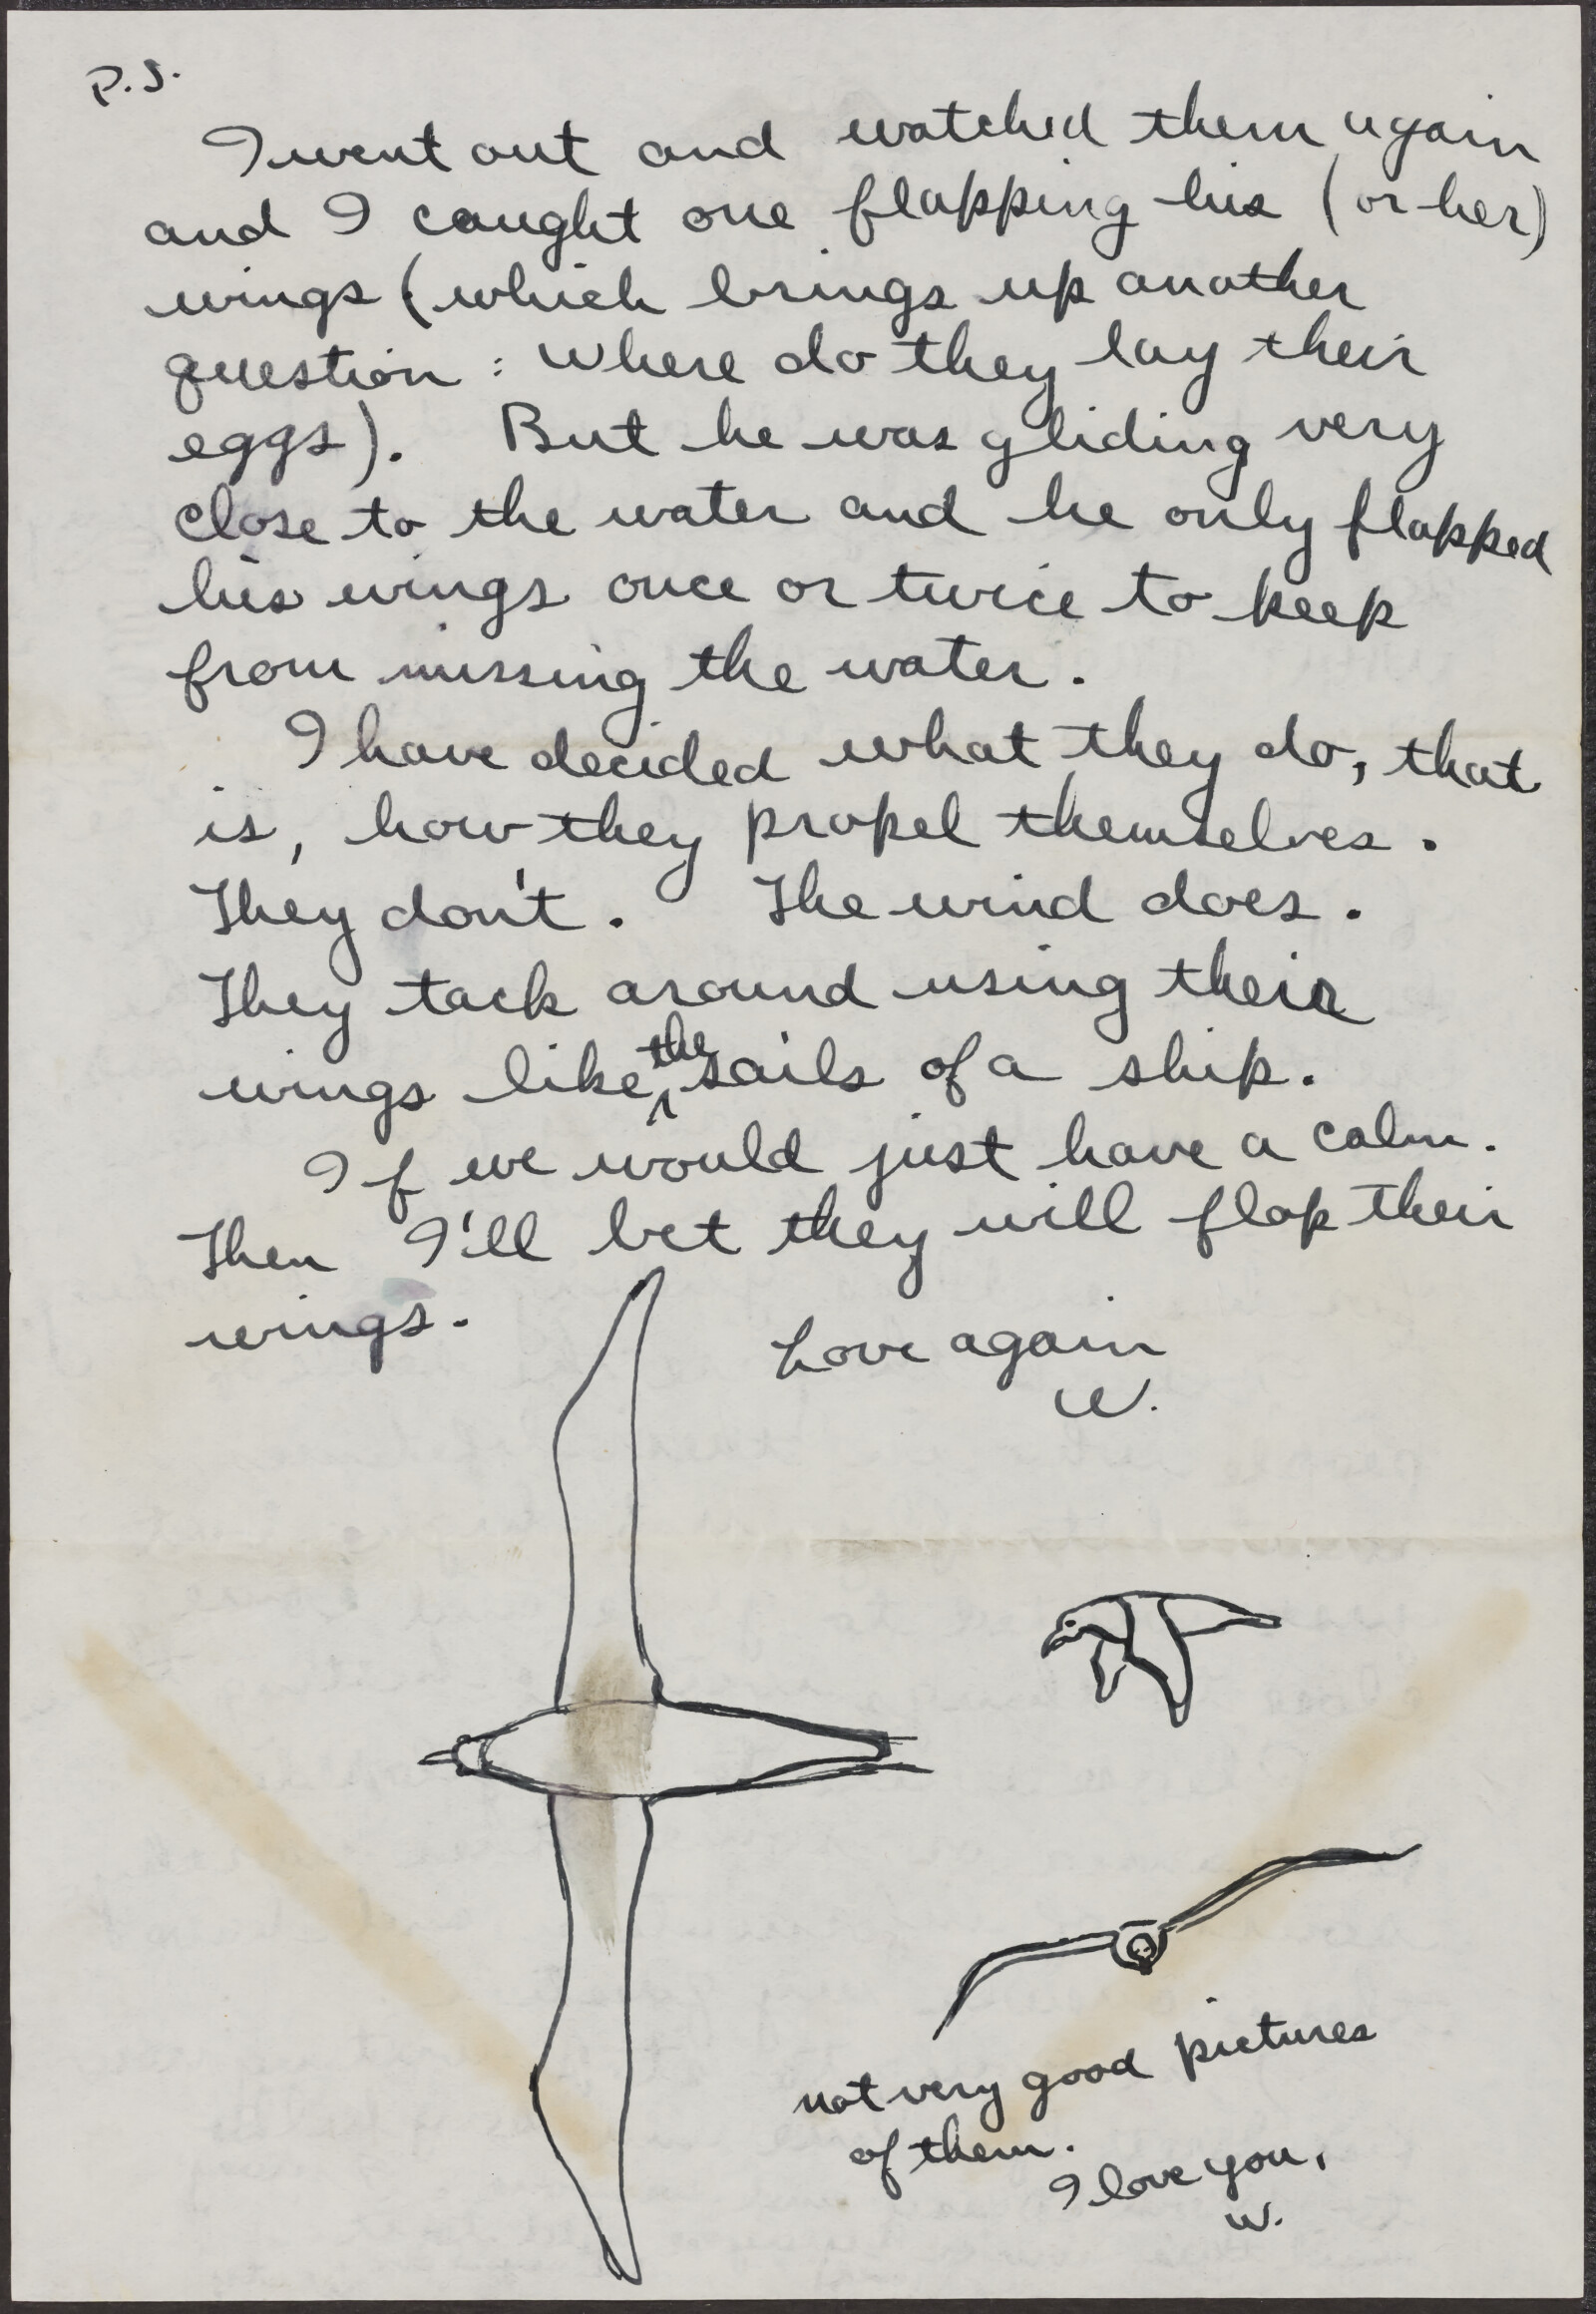 P.S.
I went out and watched them again
and I caught one flapping his (or her)
wings (which brings up another
question : Where do they lay their
eggs). But he was gliding very
close to the water and he only flapped
his wings once or twice to keep
from missing the water.
I have decided what they do, that
is, how they propel themselves.
They don't. The wind does.
They tack around using their
wings like the sails of a ship.
If we would just have a calm.
Then I'll bet they will flap their
wings.
Love again
W.
not very good pictures
of them.
I love you,
W.